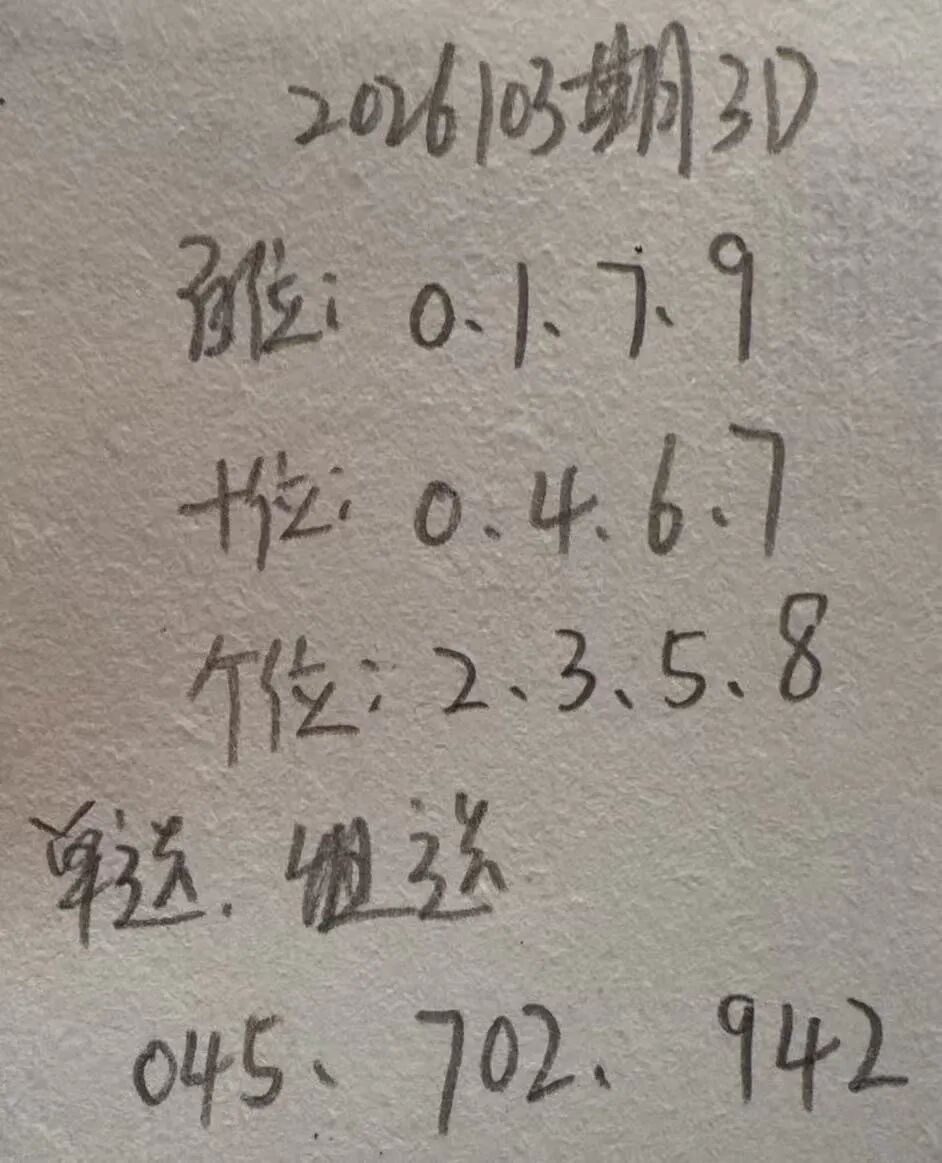 2026103期3D
百位:0、1、7、9
十位:0.4.6、7
个位:2、3、5、8
单选.组选
045、702、942